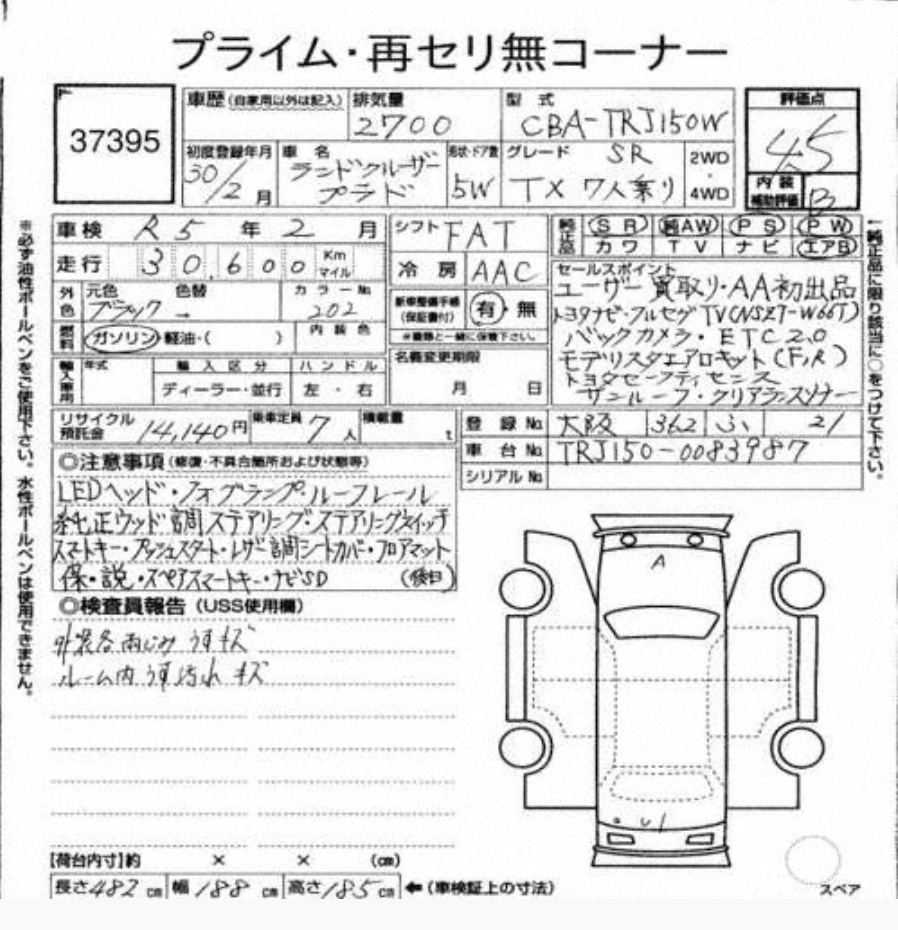 プライム・再セリ無コーナー
37395
車歴(自家用以外は記入) 排気量 2700 型式 CBA-TRJ150W
評価点 4.5
内装補助評価 B
初度登録年月 30/2月 車名 ランドクルーザープラド 形状・ドア数 5W グレード SR TX 7人乗り 2WD・4WD
車検 R5年2月 シフト FAT 純正品 SR 純AW PS PW
カワ TV ナビ エアB
走行 30,600 Km マイル 冷房 AAC
セールスポイント
ユーザー買取り・AA初出品
トヨタナビ・フルセグTV(NSZT-W66T)
バックカメラ・ETC2.0
モデリスタエアロキット(F,R)
トヨタセーフティセンス
サンルーフ・クリアランスソナー
外色 元色 ブラック → 色替 カラーNo 202 新車整備手帳(保証書付) 有・無
※書類と一緒に保管下さい。
燃料 ガソリン・軽油・( ) 内装色 名義変更期限 月 日
輸入車用 年式 輸入区分 ディーラー・並行 ハンドル 左・右
リサイクル預託金 14,140円 乗車定員 7人 積載量 t
登録No 大阪 362 ふ 21
車台No TRJ150-0083987
シリアルNo
◎注意事項(修復・不具合箇所および状態等)
LEDヘッド・フォグランプ・ルーフレール
純正ウッド調ステアリング・ステアリングスイッチ
スマートキー・プッシュスタート・レザー調シートカバー・フロアマット
保・説・スペアスマートキー・ナビSD (後日)
◎検査員報告(USS使用欄)
外装各雨じみ うすキズ
ルーム内 うす汚れ キズ
A
【荷台内寸】約 × × (cm)
長さ482cm 幅188cm 高さ185cm ←(車検証上の寸法)
スペア
※必ず油性ボールペンをご使用下さい。水性ボールペンは使用できません。
←純正品に限り該当に○をつけて下さい。